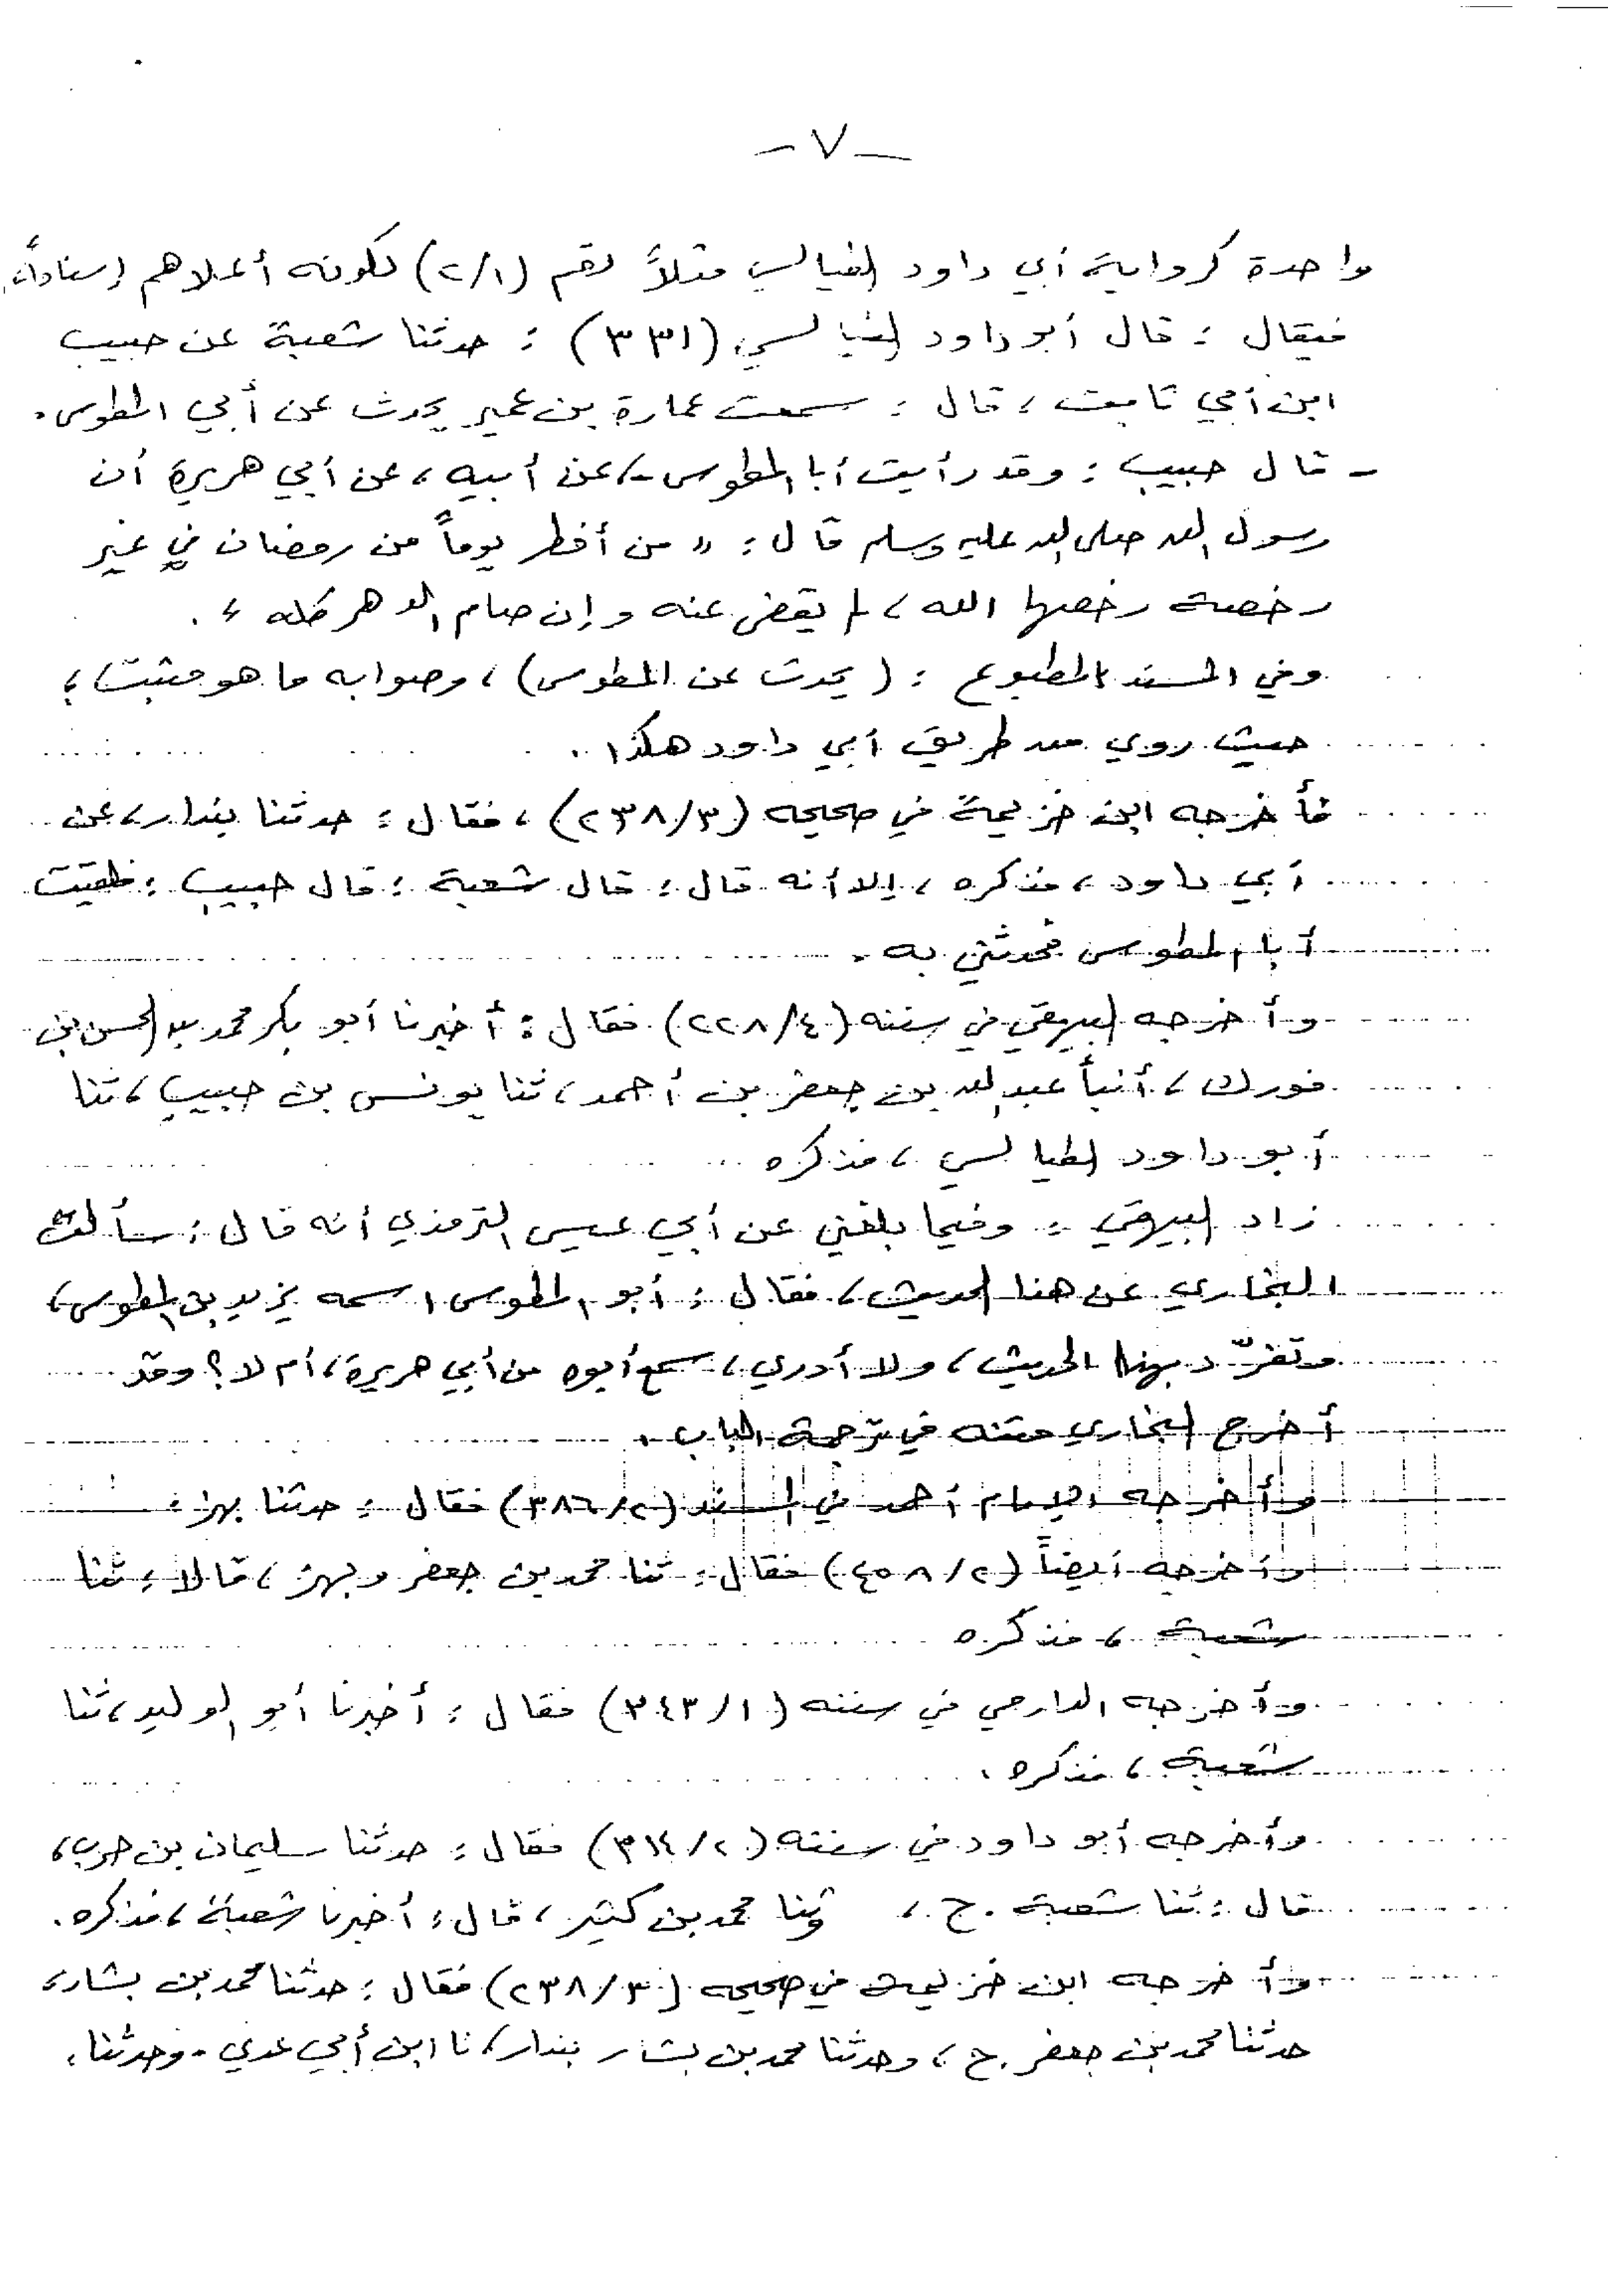 -٧-
واحدة كرواية أبي داود الطيالسي مثلاً رقم (٢/١) لكونه أعلاهم إسناداً،
فيقال : قال أبو داود الطيالسي (٣٣١) : حدثنا شعبة عن حبيب
ابن أبي ثابت ، قال : سمعت عمارة بن عمير يحدث عن أبي المطوس .
- قال حبيب : وقد رأيت أبا المطوس - ، عن أبيه ، عن أبي هريرة أن
رسول الله صلى الله عليه وسلم قال : « من أفطر يوماً من رمضان في غير
رخصة رخصها الله ، لم يقض عنه وإن صام الدهر كله » .
وفي المسند المطبوع : ( يحدث عن المطوس ) ، وصوابه ما هو مثبت ؛
حيث روي من طريق أبي داود هكذا .
فأخرجه ابن خزيمة في صحيحه (٢٣٨/٣) ، فقال : حدثنا بندار ، عن
أبي داود ، فذكره ، إلا أنه قال : قال شعبة : قال حبيب : فلقيت
أبا المطوس فحدثني به .
وأخرجه البيهقي في سننه (٢٢٨/٤) فقال : أخبرنا أبو بكر محمد بن الحسن بن
فورك ، أنبأ عبد الله بن جعفر بن أحمد ، ثنا يونس بن حبيب ، ثنا
أبو داود الطيالسي ، فذكره
زاد البيهقي : وفيما بلغني عن أبي عيسى الترمذي أنه قال : سألت
البخاري عن هذا الحديث ، فقال : أبو المطوس اسمه يزيد بن المطوس ،
وتفرّد بهذا الحديث ، ولا أدري ، سمع أبوه من أبي هريرة ، أم لا ؟ وقد
أخرج البخاري متنه في ترجمة الباب .
وأخرجه الإمام أحمد في المسند (٣٨٦/٢) فقال : حدثنا بهز :
وأخرجه أيضاً (٤٥٨/٢) فقال : ثنا محمد بن جعفر وبهز ، قالا : ثنا
شعبة ، فذكره
وأخرجه الدارمي في سننه (٣٤٣/١) فقال : أخبرنا أبو الوليد ، ثنا
شعبة ، فذكره .
وأخرجه أبو داود في سننه (٣١٤/٢) فقال : حدثنا سليمان بن حرب ،
قال : ثنا شعبة . ح . ، وثنا محمد بن كثير ، قال : أخبرنا شعبة ، فذكره .
وأخرجه ابن خزيمة في صحيحه (٢٣٨/٣) فقال : حدثنا محمد بن بشار ،
حدثنا محمد بن جعفر . ح ، وحدثنا محمد بن بشار بندار ، نا ابن أبي عدي . وحدثنا ،